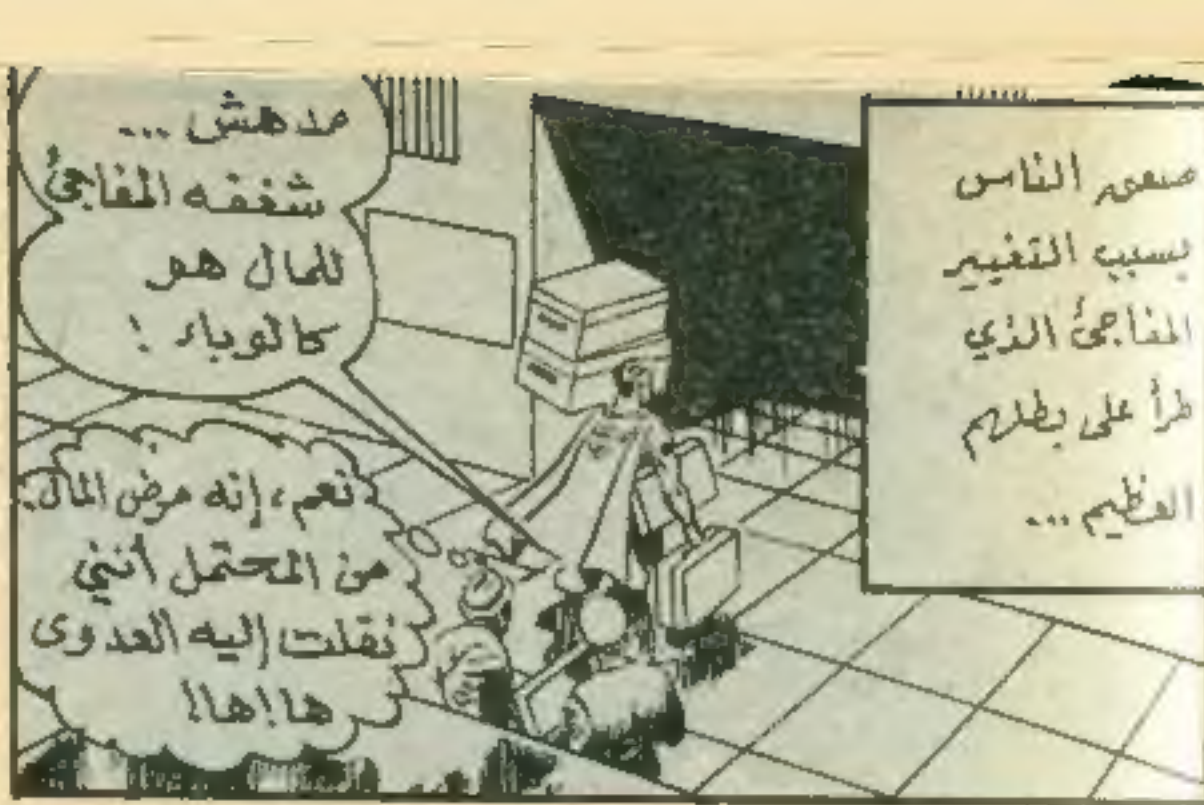 صعق الناس
بسبب التغيير
المفاجئ الذي
طرأ على بطلهم
العظيم ...
مدهش ...
شغفه المفاجئ
للمال هو
كالوباء !
نعم، إنه مرض المال.
من المحتمل أنني
نقلت إليه العدوى
ها!ها!